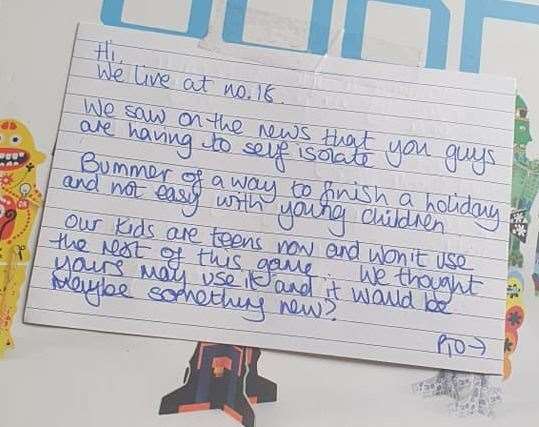 Hi,
We live at no.16.
We saw on the news that you guys
are having to self isolate
Bummer of a way to finish a holiday
and not easy with young children
Our kids are teens now and won't use
the rest of this game. We thought
yours may use it and it would be
maybe something new?
PTO→